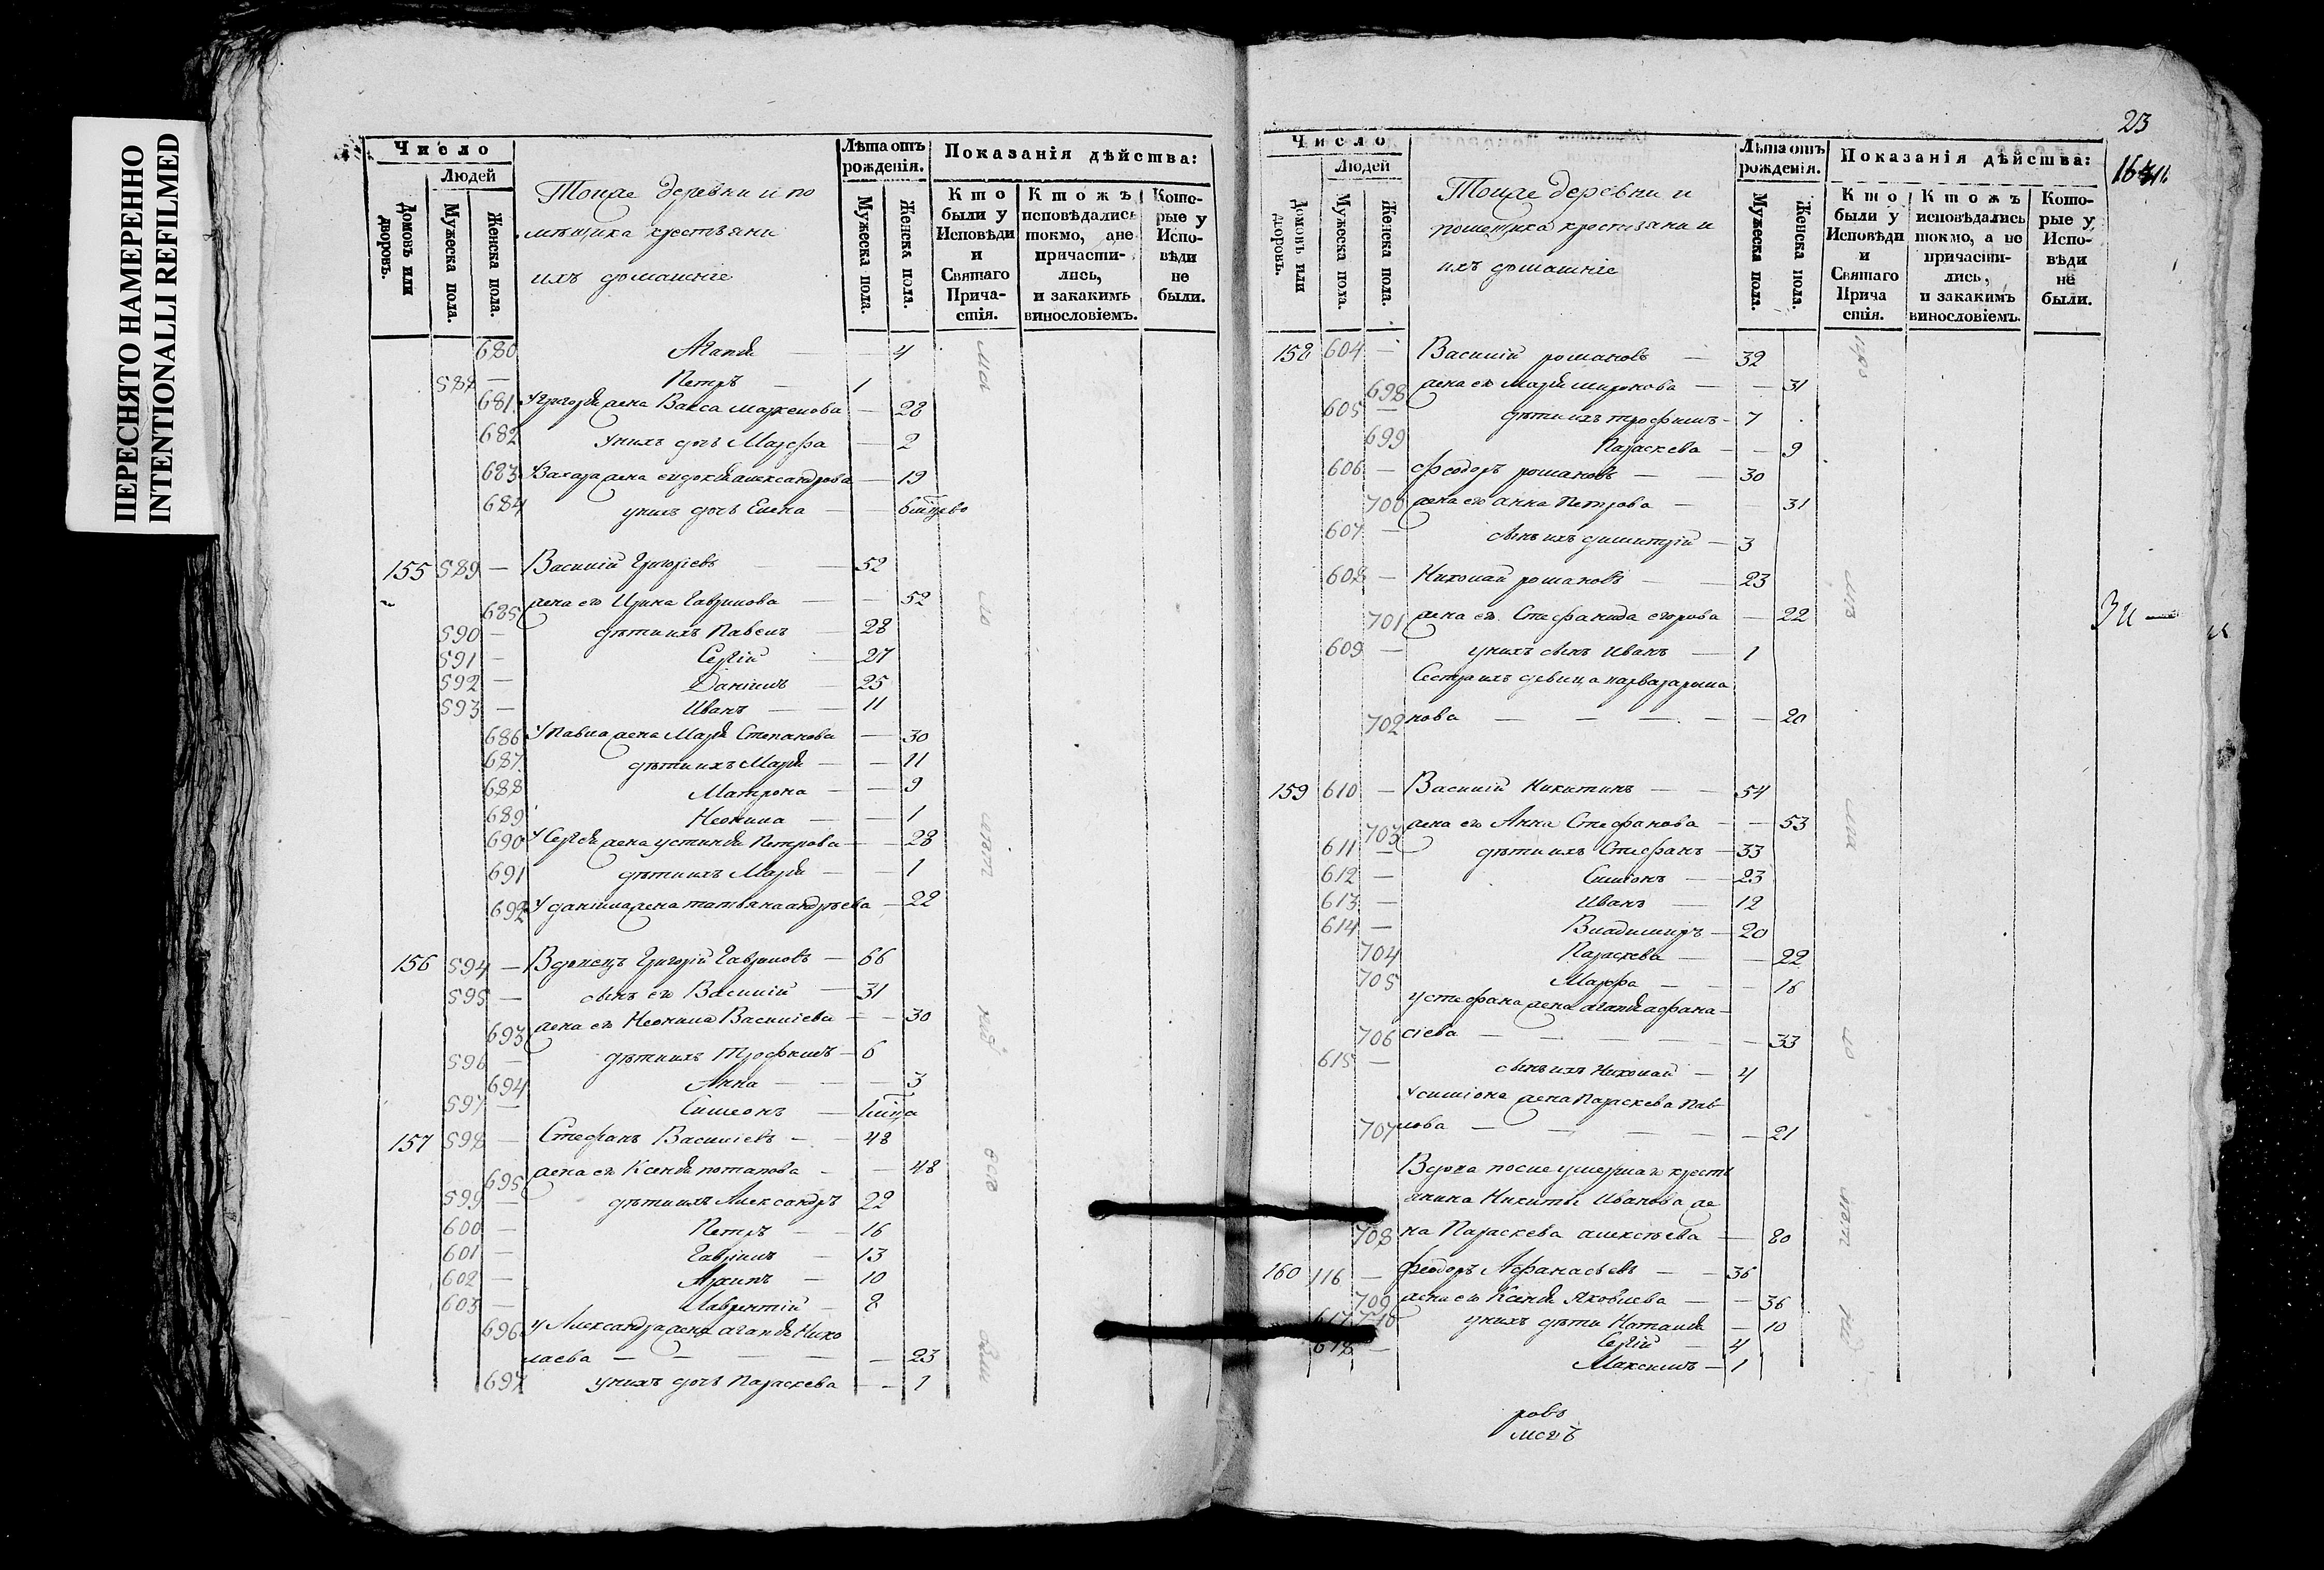 ПЕРЕСНЯТО НАМЕРЕННО
INTENTIONALLI REFILMED
Число
Людей
Домовъ или дворовъ.
Мужеска пола.
Женска пола.
Тоиже деревни и по
мѣщика крестьяни
ихъ домашніе
Лѣта отъ рожденія.
Мужеска пола.
Женска пола.
Показанія дѣйства:
Кто были у Исповѣди и Святаго Причастія.
Ктожъ исповѣдались токмо, ане причастились, и закакимъ винословіемъ.
Которые у Исповѣди не были.
680 Агапія — 4
588 — Петръ — 1
681 У Григорія жена Васса Маркелова — 28
682 у нихъ дочь Марфа — 2
683 У Захара жена евдокія александрова — 19
684 у нихъ дочь Елена — 6мцево
155 589 — Василій Григоріевъ — 52
685 жена его Ирина Гаврилова — 52
590 — дѣти ихъ Павелъ — 28
591 — Сергій — 27
592 — Даніилъ — 25
593 — Иванъ — 11
686 У Павла жена Марія Степанова — 30
687 дѣти ихъ Марія — 11
688 Матрона — 9
689 Неонила — 1
690 У Сергія жена устинія Петрова — 28
691 дѣти ихъ Марія — 1
692 У даніила жена татьяна андрѣева — 22
156 594 — Вдовецъ Григорій Гавриловъ — 66
595 — сынъ его Василій — 31
693 жена его Неонила Василіева — 30
596 — дѣти ихъ Трофимъ — 6
694 Анна — 3
597 — Симеонъ —
157 598 — Стефанъ Василіевъ — 48
695 жена его Ксенія потапова — 48
599 — дѣти ихъ Александръ 22
600 — Петръ — 16
601 — Гавріилъ — 13
602 — Архипъ — 10
603 — Лаврентій — 8
696 У Александра жена агапія Нико
лаева — 23
697 у нихъ дочь Параскева — 1
23
Число
Людей
Домовъ или дворовъ.
Мужеска пола.
Женска пола.
Тоиже деревни и
помещика крестьяни и
ихъ домашніе
Лѣта отъ рожденія.
Мужеска пола.
Женска пола.
Показанія дѣйства:
Кто были у Исповѣди и Святаго Прича стія.
Ктожъ исповѣдались токмо, а не причастились, и закакимъ винословіемъ.
Которые у Исповѣди не были.
158 604 — Василій романовъ — 32
698 жена его Марія миронова — 31
605 — дѣти ихъ трофимъ — 7
699 Параскева — 9
606 — Феодоръ романовъ — 30
700 жена его анна Петрова — 31
607 — сынъ ихъ димитрій — 3
608 — Николай романовъ — 23
701 жена его Стефанида егорова — 22
609 — у нихъ сынъ Иванъ — 1
Сестра ихъ девица варвара рома
702 нова — 20
159 610 — Василій Никитинъ — 54
703 жена его Анна Стефанова — 53
611 — дѣти ихъ Стефанъ — 33
612 — Симіонъ — 23
613 — Иванъ — 12
614 — Владимиръ — 20
704 Параскева — 22
705 Марфа — 16
у стефана жена агапія афана-
706 сіева — 33
615 — сынъ ихъ Николай — 4
У симіона жена Параскева Пав-
707 лова — 21
Вдова после умершаго кресть
янина Никиты Иванова же
708 на Параскева алексѣева — 80
160 116 — Феодоръ Афанасьевъ — 36
709 жена его Ксенія Яковлева — 36
617 710 у нихъ дѣти Наталія — 10
618 — Сергій — 4
Максимъ — 1
ровъ